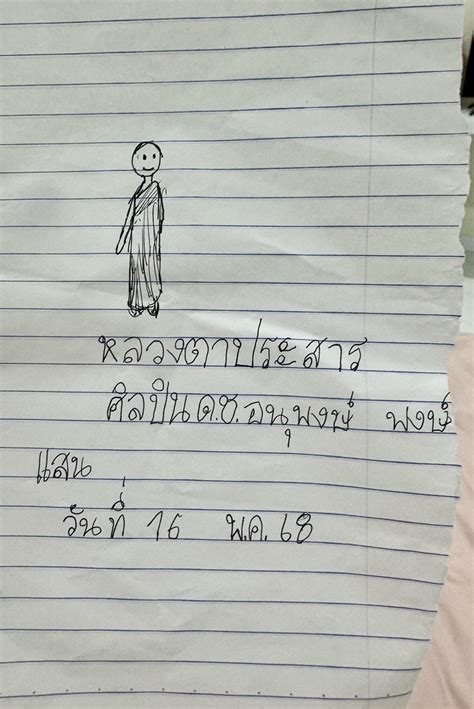 หลวงตาประสาร
ศิลปินด.ช.อนุพงษ์ พงษ์
แสน
วันที่ 16 พ.ค. 68